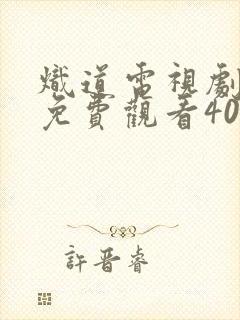 熾道電視劇
免費觀看40
許晋睿